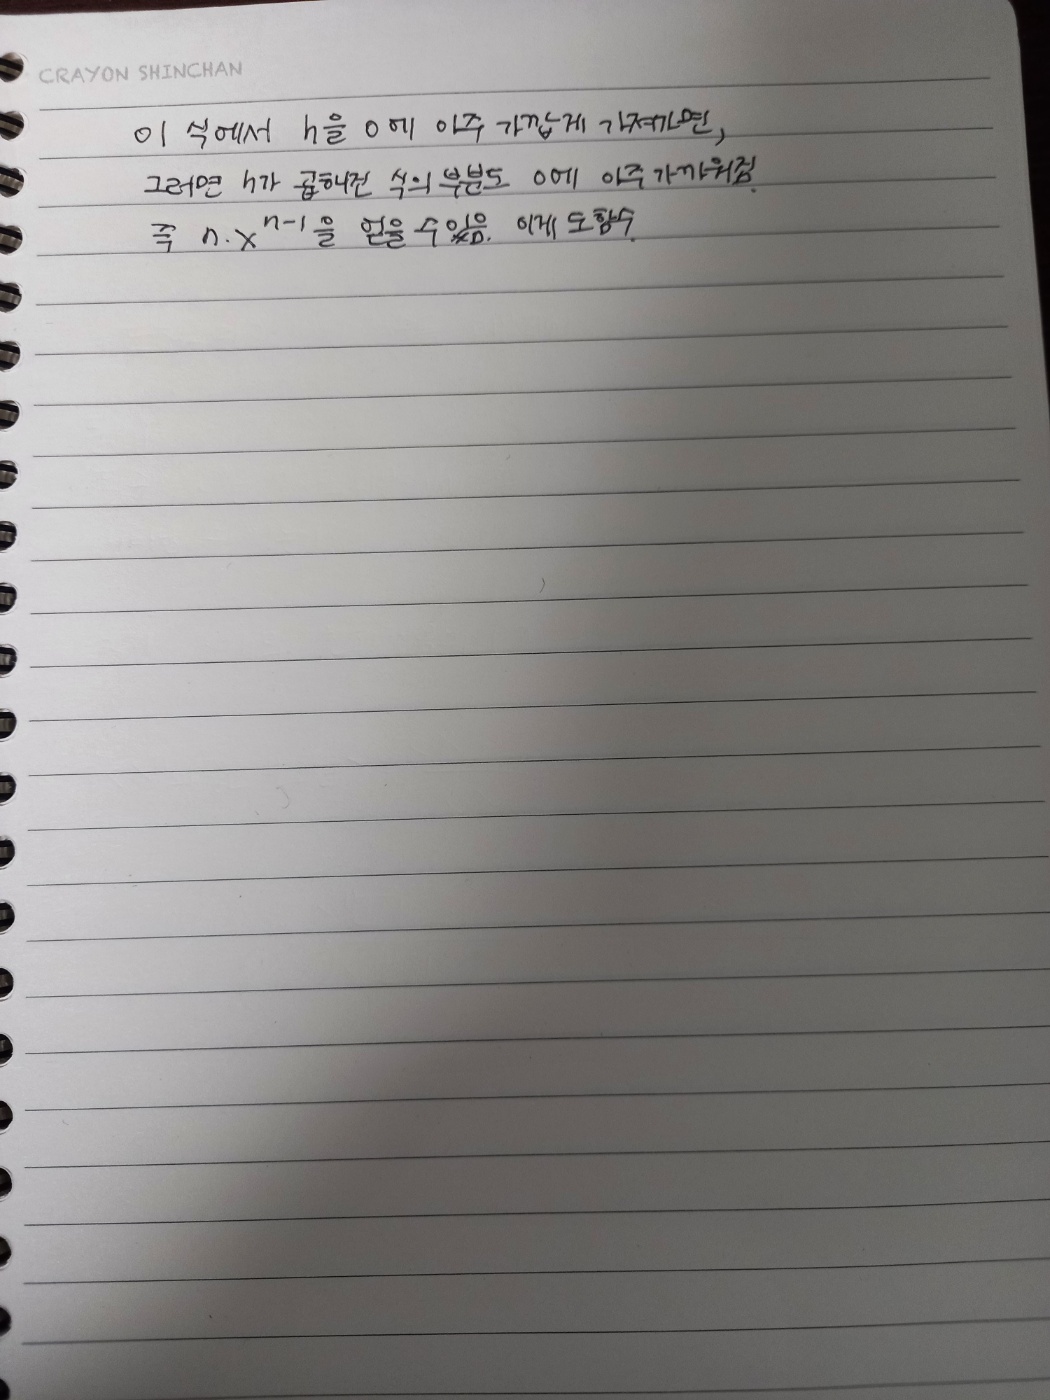 CRAYON SHINCHAN
이 식에서 h을 0에 아주 가깝게 가져가면,
그러면 h가 곱해진 식의 부분도 0에 아주 가까워짐.
즉 n·x^{n-1}을 얻을 수 있음. 이게 도함수